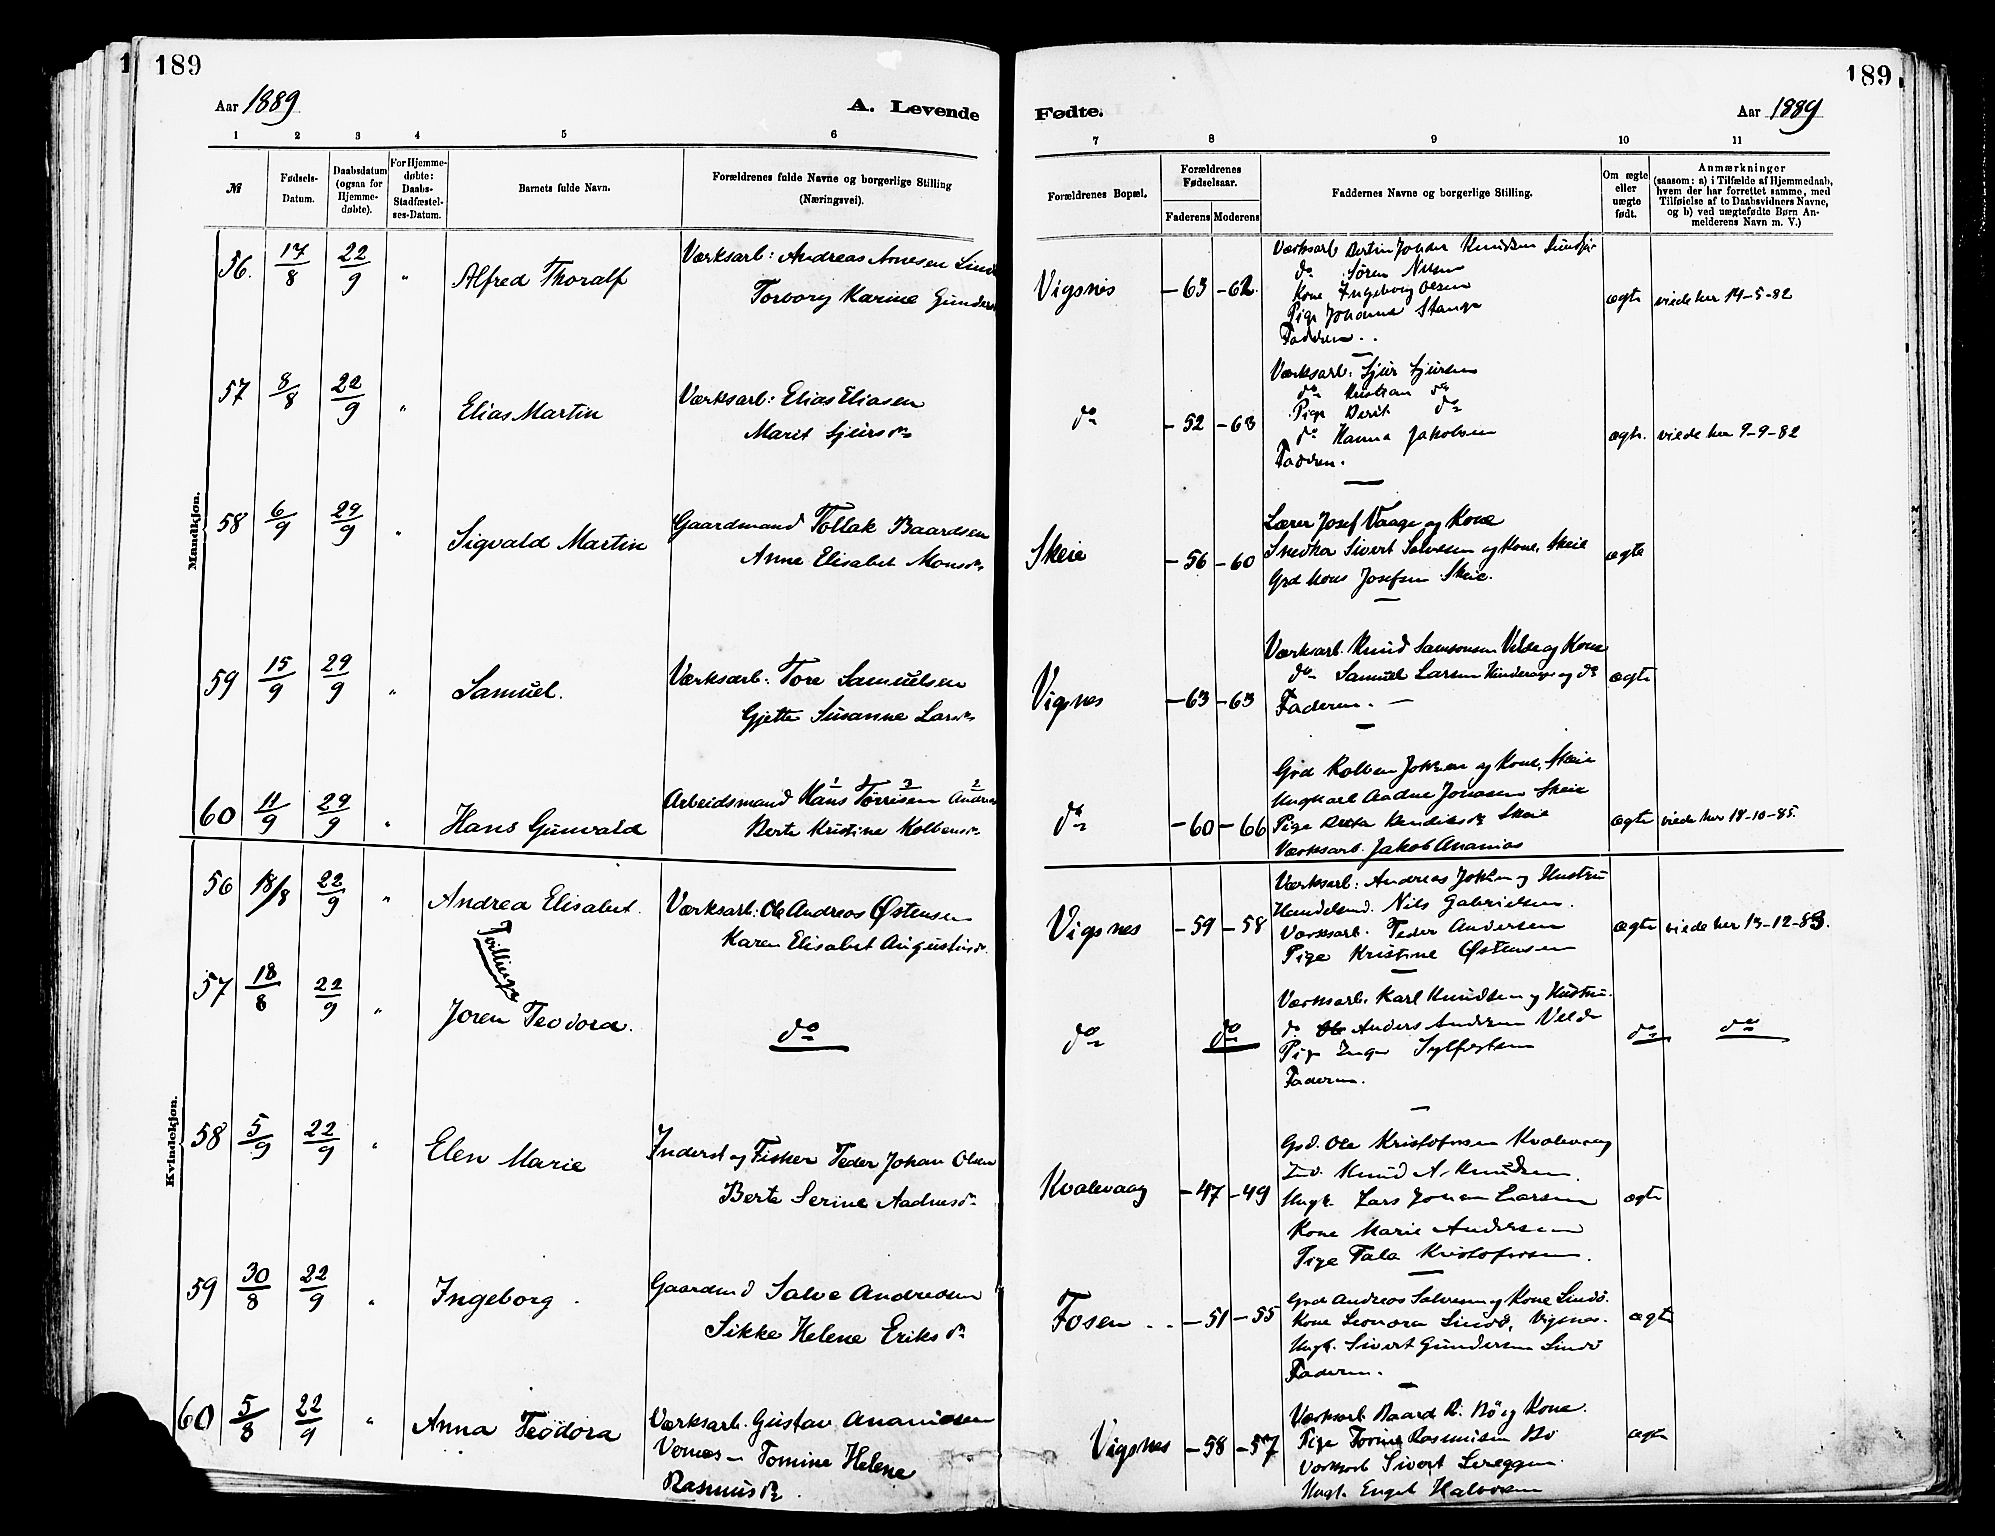 189
189
Aar 1889
A. Levende
Fødte.
Aar 1889
1 2 3 4 5 6 7 8 9 10 11
№
Fødsels-
Datum.
Daabsdatum
(ogsaa for
Hjemme-
døbte).
For Hjemme-
døbte:
Daabs-
Stadfæstel-
ses-Datum.
Barnets fulde Navn.
Forældrenes fulde Navne og borgerlige Stilling
(Næringsvei).
Forældrenes Bopæl.
Forældrenes
Fødselsaar.
Faderens
Moderens
Faddernes Navne og borgerlige Stilling.
Om ægte
eller
uægte
født.
Anmærkninger
(saasom: a) i Tilfælde af Hjemmedaab,
hvem der har forrettet samme, med
Tilføielse af to Daabsvidners Navne,
og b) ved uægtefødte Børn An-
melderens Navn m. V.)
Mandkjøn.
56. 17/8 22/9 " Alfred Thoralf
Værksarb: Andreas Aonesen
Torborg Karine
Vigsnes -63 -62.
Værksarb Bertin Knudsen
do Søren
Kone Ingeborg Olsen
Pige Johanna Stange
Fadderen..
ægte viede her 14-5-82
57 8/8 22/9 " Elias Martin
Værksarb: Elias Eliasen
Marit Sjursdr
do -52 -63
Værksarb: Sjur Sjursen
do Kristian do
Pige Berit do
do Hanna Jakobsen
Fadderen.
ægte. viede her 9-9-82
58 6/9 29/9 " Sigvald Martin
Gaardmand Tollak Baardsen
Anne Elisabet Monsdr
Skeie -56 -60
Lærer Josef Vaage og Kone
Snedker Sivert Salvesen og Kone, Skeie
Grd Mons Josefsen Skeie.
ægte
59 15/9 29/9 " Samuel.
Værksarb: Tore Samuelsen
Gjette Susanne Larsdr
Vigsnes -63 -63
Værksarb. Knud Samsonsen og Kone
do Samuel Larsen og do
Faderen. -
ægte
60 11/9 29/9 " Hans Gunvald
Arbeidsmand Hans Tørrisen
Berte Kristine Kolbensdr
do -60 -66
Grd Kolben og Kone, Skeie
Ungkarl Aadne Jonasen Skeie
Pige Skeie
Værksarb. Jakob Ananias
ægte viede her 18-10-85.
Kvindekjøn.
56 18/8 22/9 " Andrea Elisabet.
Værksarb: Ole Andreas Østensen
Karen Elisabet Augustinsdr.
Vigsnes -59 -58
Værksarb: Andreas og Hustru
Handelsmd. Nils Gabrielsen.
Værksarb. Peder Andersen
Pige Kristine Østensen
ægte viede her 13-12-83.
Tvillinger
57 18/8 22/9 " Joren Teodora.
do
do do
Værksarb. Karl Knudsen og Hustru.
do Anders Andersen
Pige Inger
Faderen.
do do
58 5/9 22/9 " Elen Marie
Inderst og Fisker Peder Johan Olsen
Berte Serine Aadnesdr
Kvalevaag -47 -49
Grd. Ole Kristofersen Kvalevaag
Knud A. Knudsen.
Ungk. Lars Larsen
Kone Marie Andersen
Pige Tala Kristofersen.
ægte
59 30/8 22/9 " Ingeborg.
Gaardmd Salve Andersen
Sikke Helene Eriksdr
Fosen.. -51 -55
Grd Andreas Salvesen og Kone Lindø.
Kone Leonora Lindø, Vigsnes.
Ungk. Sivert Gundersen Lindø
Faderen.
ægte
60 5/8 22/9 " Anna Teodora
Værksarb. Gustav Ananiasen
Tomine Helene
Rasmusdr.
Vigsnes -58 -57
Værksarb Baard R. Bø og Kone.
Pige Rasmusen Bø
Værksarb Sivert
Ungk. Engel Halvorsen
ægte